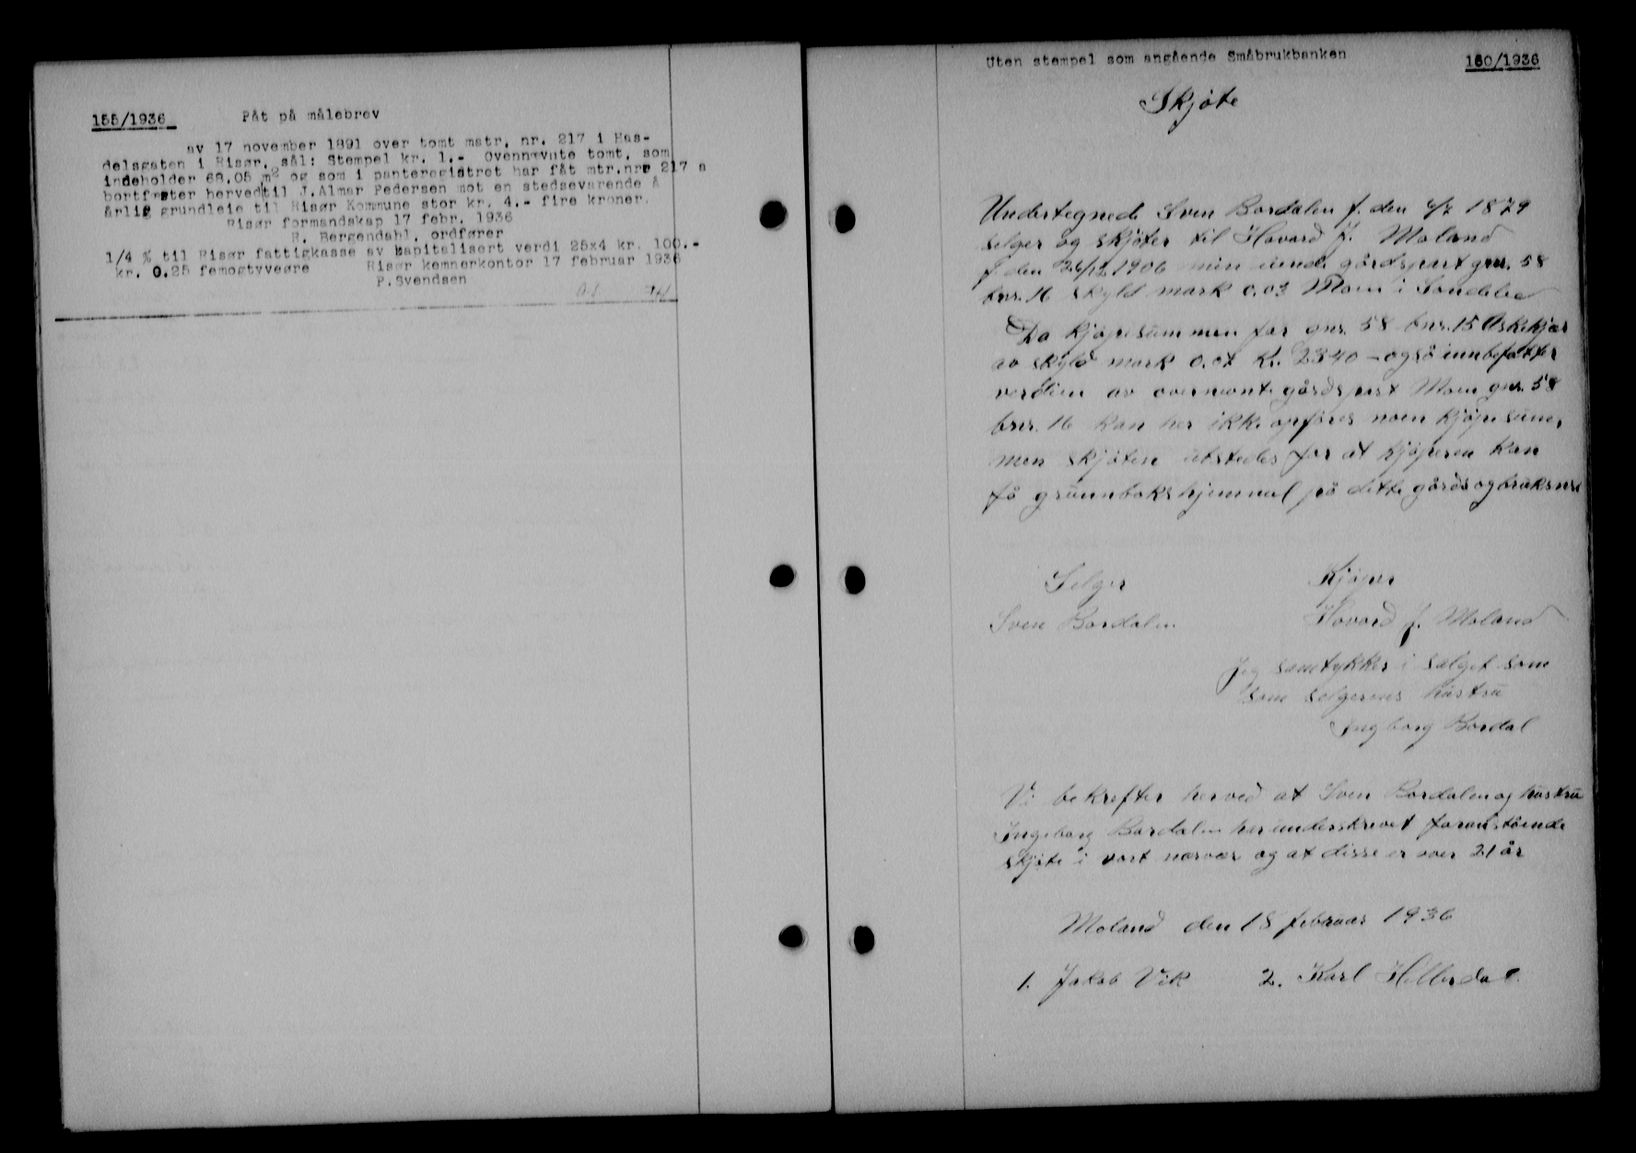 155/1936 Påt på målebrev
av 17 november 1891 over tomt mstr. nr. 217 i Has-
delsgaten i Risør, sål: Stempel kr. 1.- Ovennævnte tomt, som
indeholder 69,05 m2 og som i panteregistret har fåt mtr.nr. 217 a
bortfæster herved til J.Almar Pedersen mot en stedsevarende å
årlig grundleie til Risør Kommune stor kr. 4.- fire kroner.
Risør formandskap 17 febr. 1936
R. Bergendahl, ordfører
1/4 % til Risør fattigkasse av kapitalisert verdi 25x4 kr. 100.-
kr. 0.25 femogtyveøre Risør kemnerkontor 17 februar 1936
P.Svendsen
Uten stempel som angående Småbrukbanken 160/1936
Skjøte
Undertegnede Sven Bordalen f. den 1879
selger og skjøter til Hovard J. Moland
f den 1906 min eiende gårdspart gnr. 58
bnr. 16 skyld mark 0.03 Moen i Søndeled
Da kjøpesummen for gnr. 58 bnr. 15 Askekjær
av skyld mark 0.07 Kr. 2340 - også innbefatter
verdien av overnevnte gårdspart Moen gnr. 58
bnr. 16 kan her ikke opføres noen kjøpesum,
men skjøten utstedes for at kjøperen kan
få grunnbokshjemmel på dette gårds og bruksnr
Selger Kjøper
Sven Bordalen Hovard J. Moland
Jeg samtykker i salget som
som selgerens hustru
Ingeborg Bordal
Vi bekrefter herved at Sven Bordalen og hustru
Ingeborg Bordalen har underskrevet foranstående
skjøte i vort nærvær og at disse er over 21 år
Moland den 18 februar 1936
1. Jakob Vik 2. Karl Hillerdal.